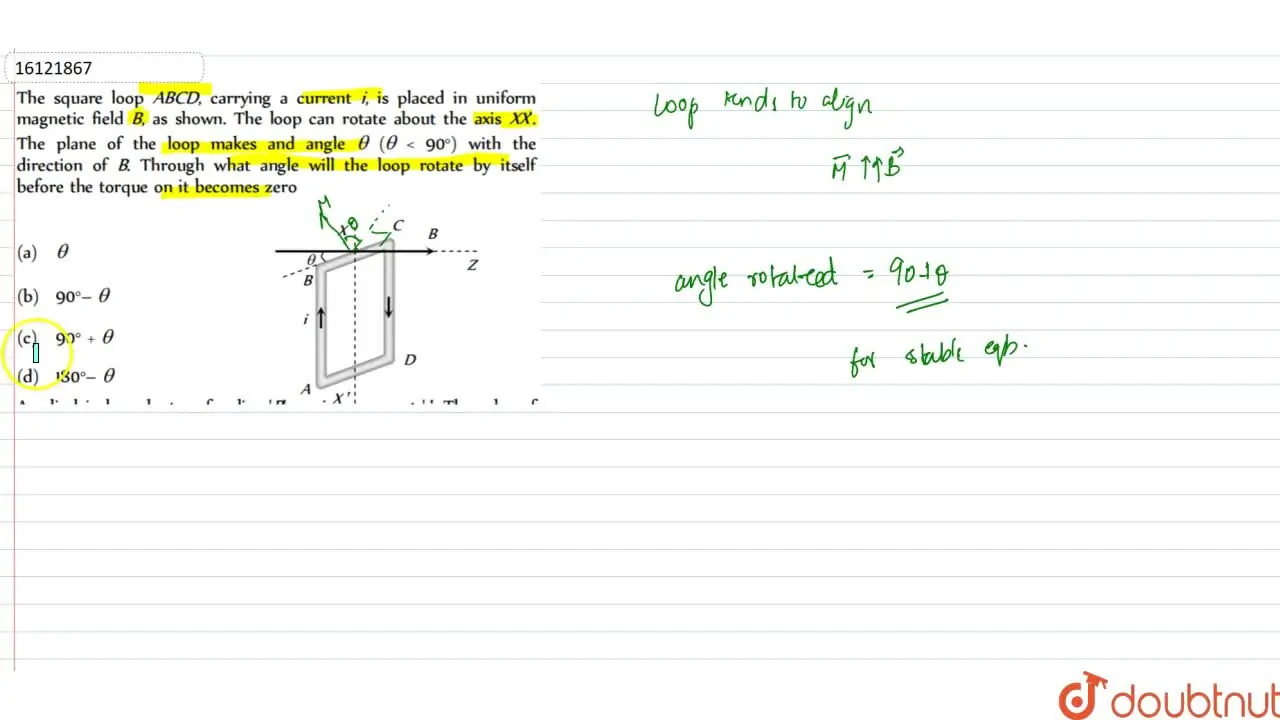 16121867
The square loop ABCD, carrying a current i, is placed in uniform
magnetic field B, as shown. The loop can rotate about the axis XX'.
The plane of the loop makes and angle θ (θ < 90°) with the
direction of B. Through what angle will the loop rotate by itself
before the torque on it becomes zero
(a) θ
(b) 90°– θ
(c) 90° + θ
(d) 180°– θ
M
θ
X
C
B
Z
θ
B
i
D
A
X'
loop tends to align
M ↑↑ B
angle rotated = 90+θ
for stable eqb.
doubtnut